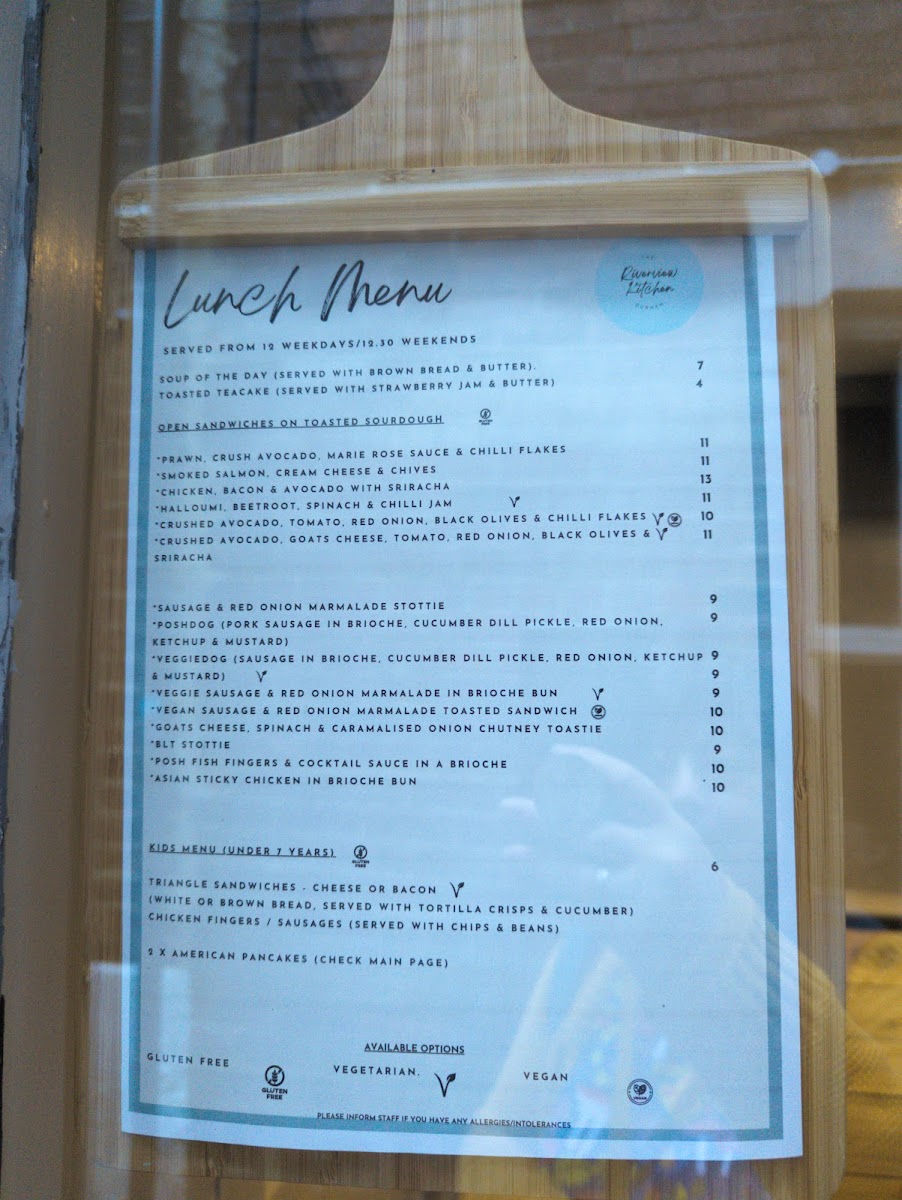 Lunch Menu
THE
Riverview
Kitchen
SERVED FROM 12 WEEKDAYS/12.30 WEEKENDS
SOUP OF THE DAY (SERVED WITH BROWN BREAD & BUTTER). 7
TOASTED TEACAKE (SERVED WITH STRAWBERRY JAM & BUTTER) 4
OPEN SANDWICHES ON TOASTED SOURDOUGH GLUTEN FREE
*PRAWN, CRUSH AVOCADO, MARIE ROSE SAUCE & CHILLI FLAKES 11
*SMOKED SALMON, CREAM CHEESE & CHIVES 11
*CHICKEN, BACON & AVOCADO WITH SRIRACHA 13
*HALLOUMI, BEETROOT, SPINACH & CHILLI JAM V 11
*CRUSHED AVOCADO, TOMATO, RED ONION, BLACK OLIVES & CHILLI FLAKES V 10
*CRUSHED AVOCADO, GOATS CHEESE, TOMATO, RED ONION, BLACK OLIVES & V 11
SRIRACHA
*SAUSAGE & RED ONION MARMALADE STOTTIE 9
*POSHDOG (PORK SAUSAGE IN BRIOCHE, CUCUMBER DILL PICKLE, RED ONION, 9
KETCHUP & MUSTARD)
*VEGGIEDOG (SAUSAGE IN BRIOCHE, CUCUMBER DILL PICKLE, RED ONION, KETCHUP 9
& MUSTARD) V 9
*VEGGIE SAUSAGE & RED ONION MARMALADE IN BRIOCHE BUN V 9
*VEGAN SAUSAGE & RED ONION MARMALADE TOASTED SANDWICH 10
*GOATS CHEESE, SPINACH & CARAMALISED ONION CHUTNEY TOASTIE 10
*BLT STOTTIE 9
*POSH FISH FINGERS & COCKTAIL SAUCE IN A BRIOCHE 10
*ASIAN STICKY CHICKEN IN BRIOCHE BUN 10
KIDS MENU (UNDER 7 YEARS) GLUTEN FREE 6
TRIANGLE SANDWICHES - CHEESE OR BACON V
(WHITE OR BROWN BREAD, SERVED WITH TORTILLA CRISPS & CUCUMBER)
CHICKEN FINGERS / SAUSAGES (SERVED WITH CHIPS & BEANS)
2 X AMERICAN PANCAKES (CHECK MAIN PAGE)
AVAILABLE OPTIONS
GLUTEN FREE GLUTEN FREE VEGETARIAN. V VEGAN VEGAN
PLEASE INFORM STAFF IF YOU HAVE ANY ALLERGIES/INTOLERANCES